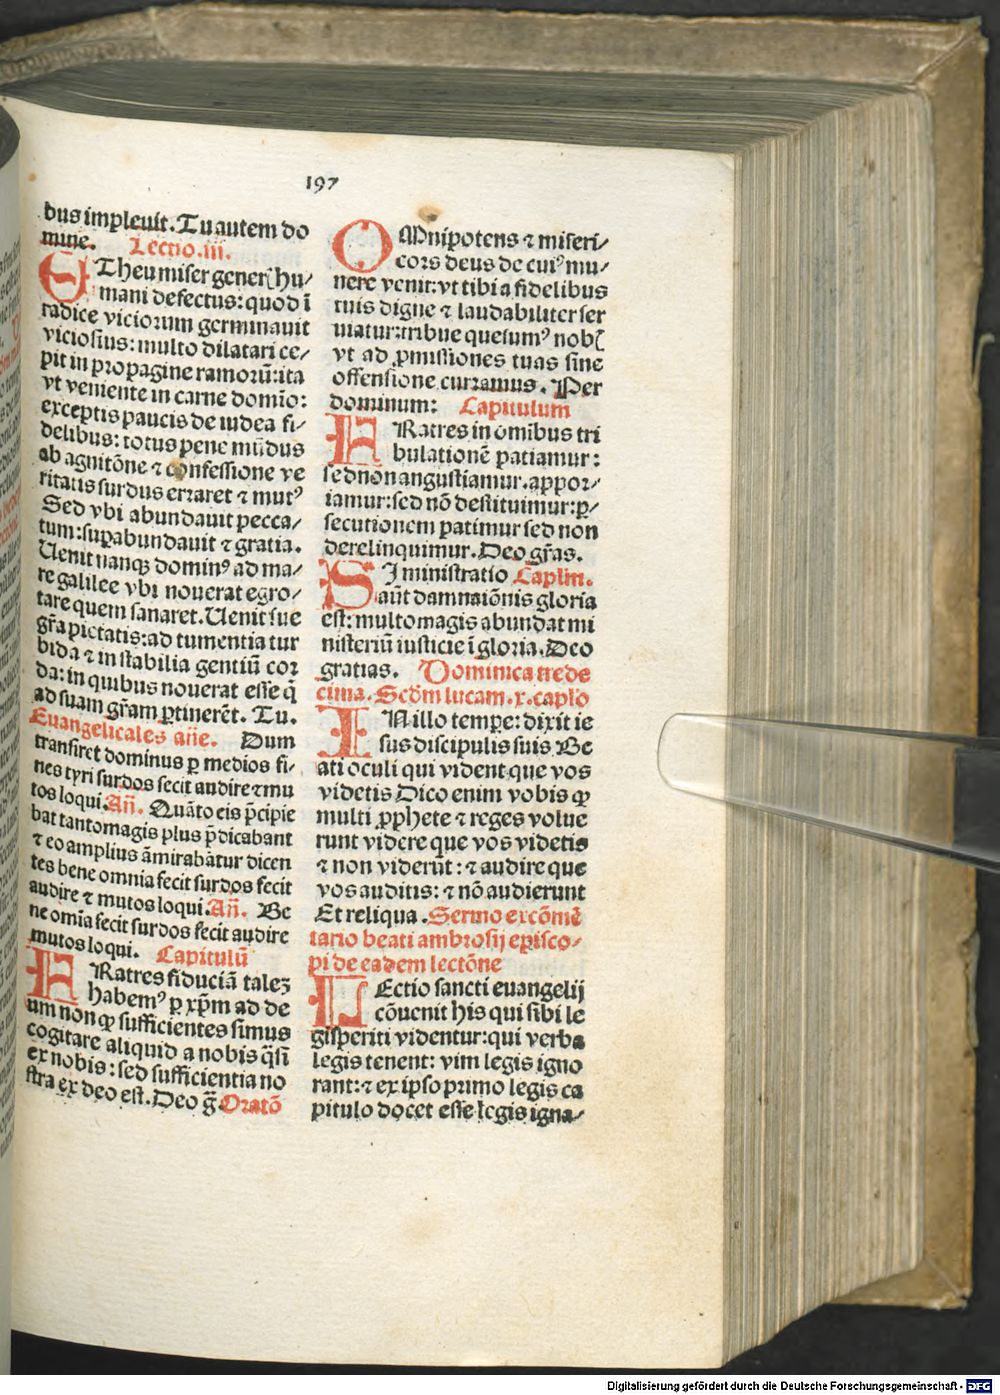 197
bus impleuit. Tu autem do
mine. Lectio .iii.
ETheu miser gener[ hu/
mani defectus: quod ī
radice viciorum germinauit
viciosius: multo dilatari ce/
pit in propagine ramorū: ita
vt veniente in carne domīo:
exceptis paucis de iudea fi/
delibus: totus pene mūdus
ab agnitōne ⁊ confessione ve
ritatis surdus erraret ⁊ mutꝰ
Sed vbi abundauit pecca/
tum: suꝑabundauit ⁊ gratia.
Uenit nanqꝫ dominꝰ ad ma/
re galilee vbi nouerat egro/
tare quem sanaret. Uenit sue
gr̄a pietatis: ad tumentia tur
bida ⁊ instabilia gentiū cor
da: in quibus nouerat esse q̄
ad suam gr̄am ꝑtinerēt. Tu.
Euangelicales añe. Dum
transiret dominus ꝑ medios fi/
nes tyri surdos fecit audire ⁊ mu
tos loqui. Añ. Quāto eis p̄cipie
bat tantomagis plus p̄dicabant
⁊ eo amplius āmirabātur dicen
tes bene omnia fecit surdos fecit
audire ⁊ mutos loqui. Añ. Be
ne omīa fecit surdos fecit audire
mutos loqui. Capitulū
FRatres fiduciā talēꝫ
habemꝰ ꝑ xp̄m ad de
um non ꝙ sufficientes simus
cogitare aliquid a nobis q̄si
ex nobis: sed sufficientia no
stra ex deo est. Deo g̅. Oratō
OMnipotens ⁊ miseri/
cors deus de cuiꝰ mu/
nere venit: vt tibi a fidelibus
tuis digne ⁊ laudabiliter ser
uiatur: tribue quesumꝰ nob[
vt ad ꝓmissiones tuas sine
offensione curramus. Per
dominum: Capitulum
FRatres in omībus tri
bulationē patiamur:
sed non angustiamur. appor/
iamur: sed nō destituimur: ꝑ/
secutionem patimur sed non
derelinquimur. Deo gr̄as.
SI ministratio Caplm.
aūt damnaiōnis gloria
est: multo magis abundat mi
nisteriū iusticie ī gloria. Deo
gratias. Dominica trede
cima. Scd̄m lucam .x. caplo
IN illo tempe: dixit ie
sus discipulis suis Be
ati oculi qui vident que vos
videtis Dico enim vobis ꝙ
multi ꝓphete ⁊ reges volue
runt videre que vos videtis
⁊ non viderūt: ⁊ audire que
vos auditis: ⁊ nō audierunt
Et reliqua. Sermo ex cōmē
tario beati ambrosij episco/
pi de eadem lectōne
LEctio sancti euangelij
cōuenit his qui sibi le
gisperiti videntur: qui verba
legis tenent: vim legis igno
rant: ⁊ ex ipso primo legis ca
pitulo docet esse legis igna/
Digitalisierung gefördert durch die Deutsche Forschungsgemeinschaft - DFG